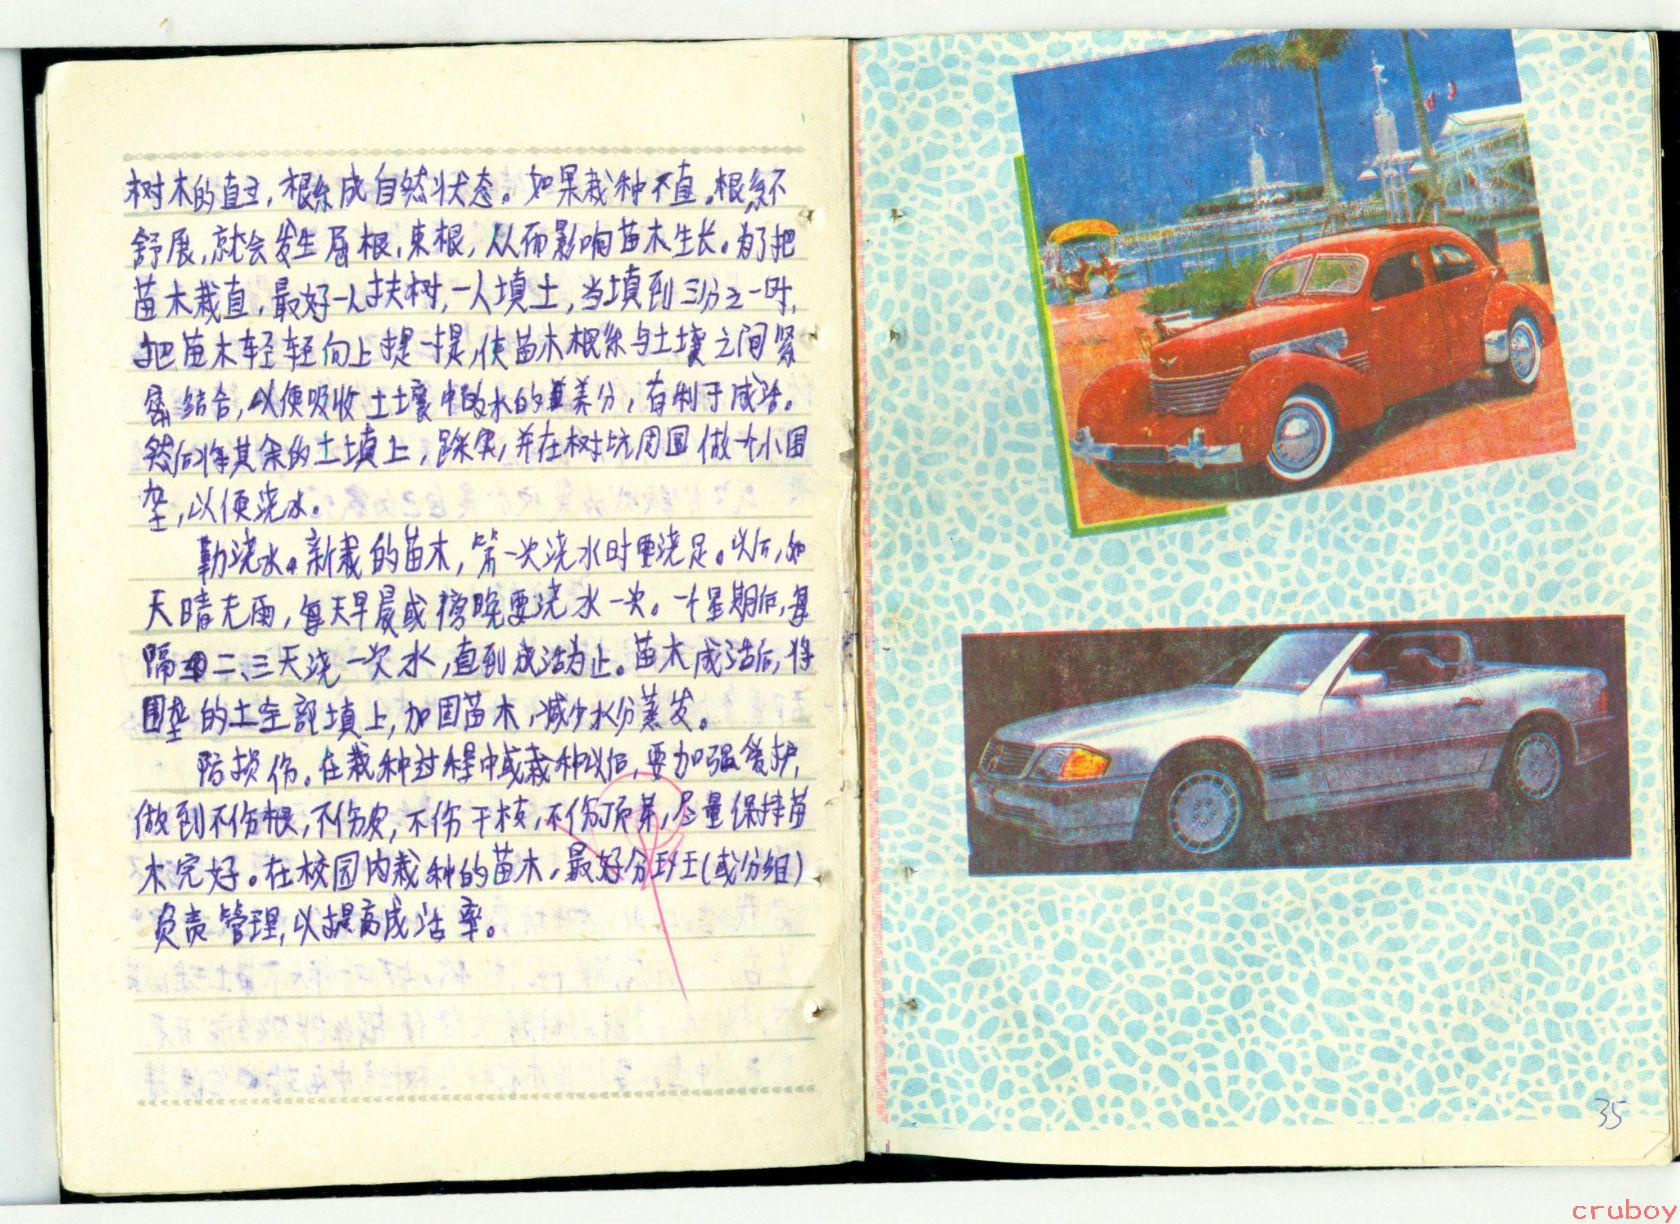 树木的直立，根系成自然状态。如果栽种不直，根系不
舒展，就会发生屈根，束根，从而影响苗木生长。为了把
苗木栽直，最好一人扶树，一人填土，当填到三分之一时，
把苗木轻轻向上提一提，使苗木根系与土壤之间紧
密结合，以便吸收土壤中的水的养分，有利于成活。
然后将其余的土填上，踩实，并在树坑周围做个小围
垄，以便浇水。
勤浇水。新栽的苗木，第一次浇水时要浇足。以后，如
天晴无雨，每天早晨或傍晚要浇水一次。一个星期后，每
隔二、三天浇一次水，直到成活为止。苗木成活后，将
围垄的土全部填上，加固苗木，减少水分蒸发。
防损伤。在栽种过程中或栽种以后，要加强爱护，
做到不伤根，不伤皮，不伤干枝，不伤顶芽，尽量保持苗
木完好。在校园内栽种的苗木，最好分班（或分组）
负责管理，以提高成活率。
35
cruboy